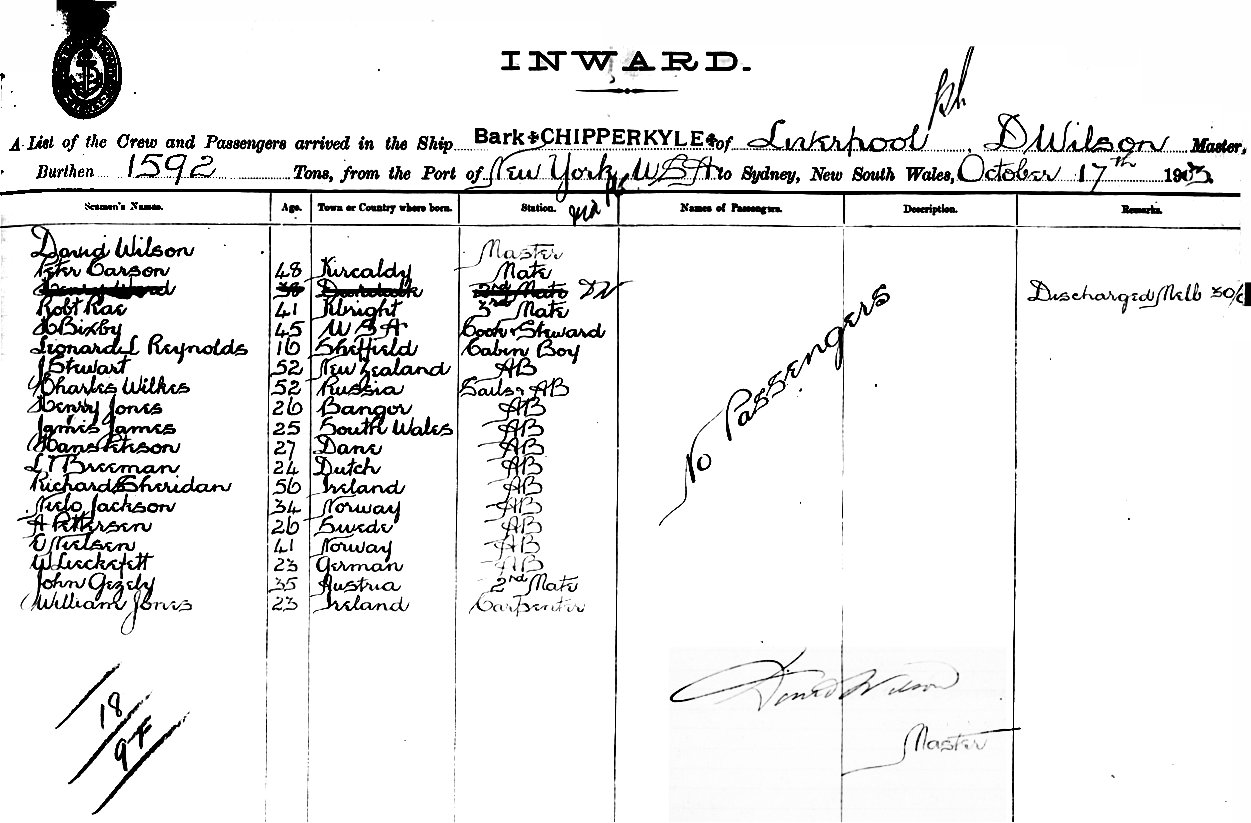 INWARD.
A List of the Crew and Passengers arrived in the Ship Bark CHIPPERKYLE of Liverpool, D Wilson Master,
Burthen 1592 Tons, from the Port of New York USA to Sydney, New South Wales, October 17th 1903.
via
Seamen's Names. Age. Town or Country where born. Station. Names of Passengers. Description. Remarks.
David Wilson Master
Peter Carson 48 Kircaldy Mate
Henry Ward 38 Dundalk 2nd Mate DW Discharged Melb 30/
Robt Rae 41 Kbright 3rd Mate
H Bixby 45 USA Cook & Steward
Leonard L Reynolds 16 Sheffield Cabin Boy
J Stewart 52 New Zealand AB
Charles Wilkes 52 Russia Sailsr AB
Henry Jones 26 Bangor AB
James James 25 South Wales AB
Hans Peterson 27 Dane AB
L T Breeman 24 Dutch AB
Richard Sheridan 56 Ireland AB
Nielo Jackson 34 Norway AB
A Pettersen 26 Swede AB
O Nielsen 41 Norway AB
W Lieckfett 23 German AB
John Gezely 35 Austria 2nd Mate
William Jones 23 Ireland Carpenter
No Passengers
18
9F
David Wilson
Master